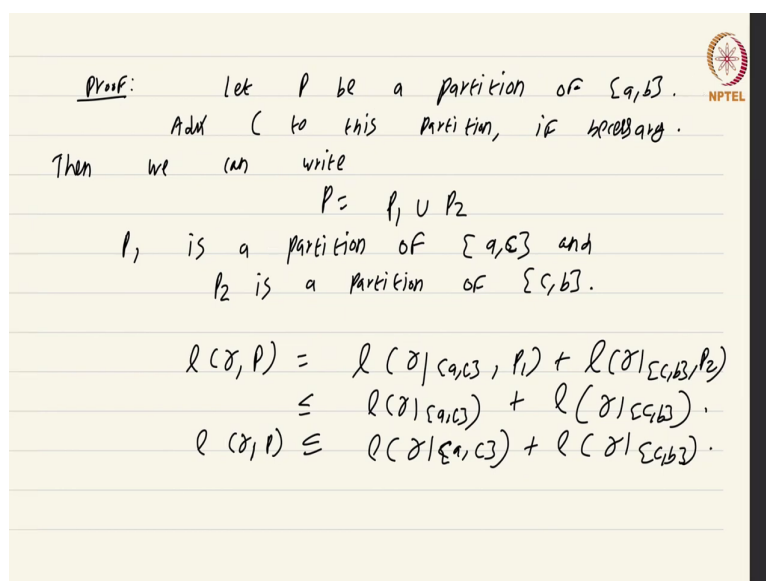 NPTEL
Proof: Let P be a partition of [a,b].
Add C to this partition, if necessary.
Then we can write
P = P₁ ∪ P₂
P₁ is a partition of [a,c] and
P₂ is a partition of [c,b].
l(γ, P) = l(γ|[a,c], P₁) + l(γ|[c,b], P₂)
≤ l(γ|[a,c]) + l(γ|[c,b]).
l(γ, P) ≤ l(γ|[a,c]) + l(γ|[c,b]).